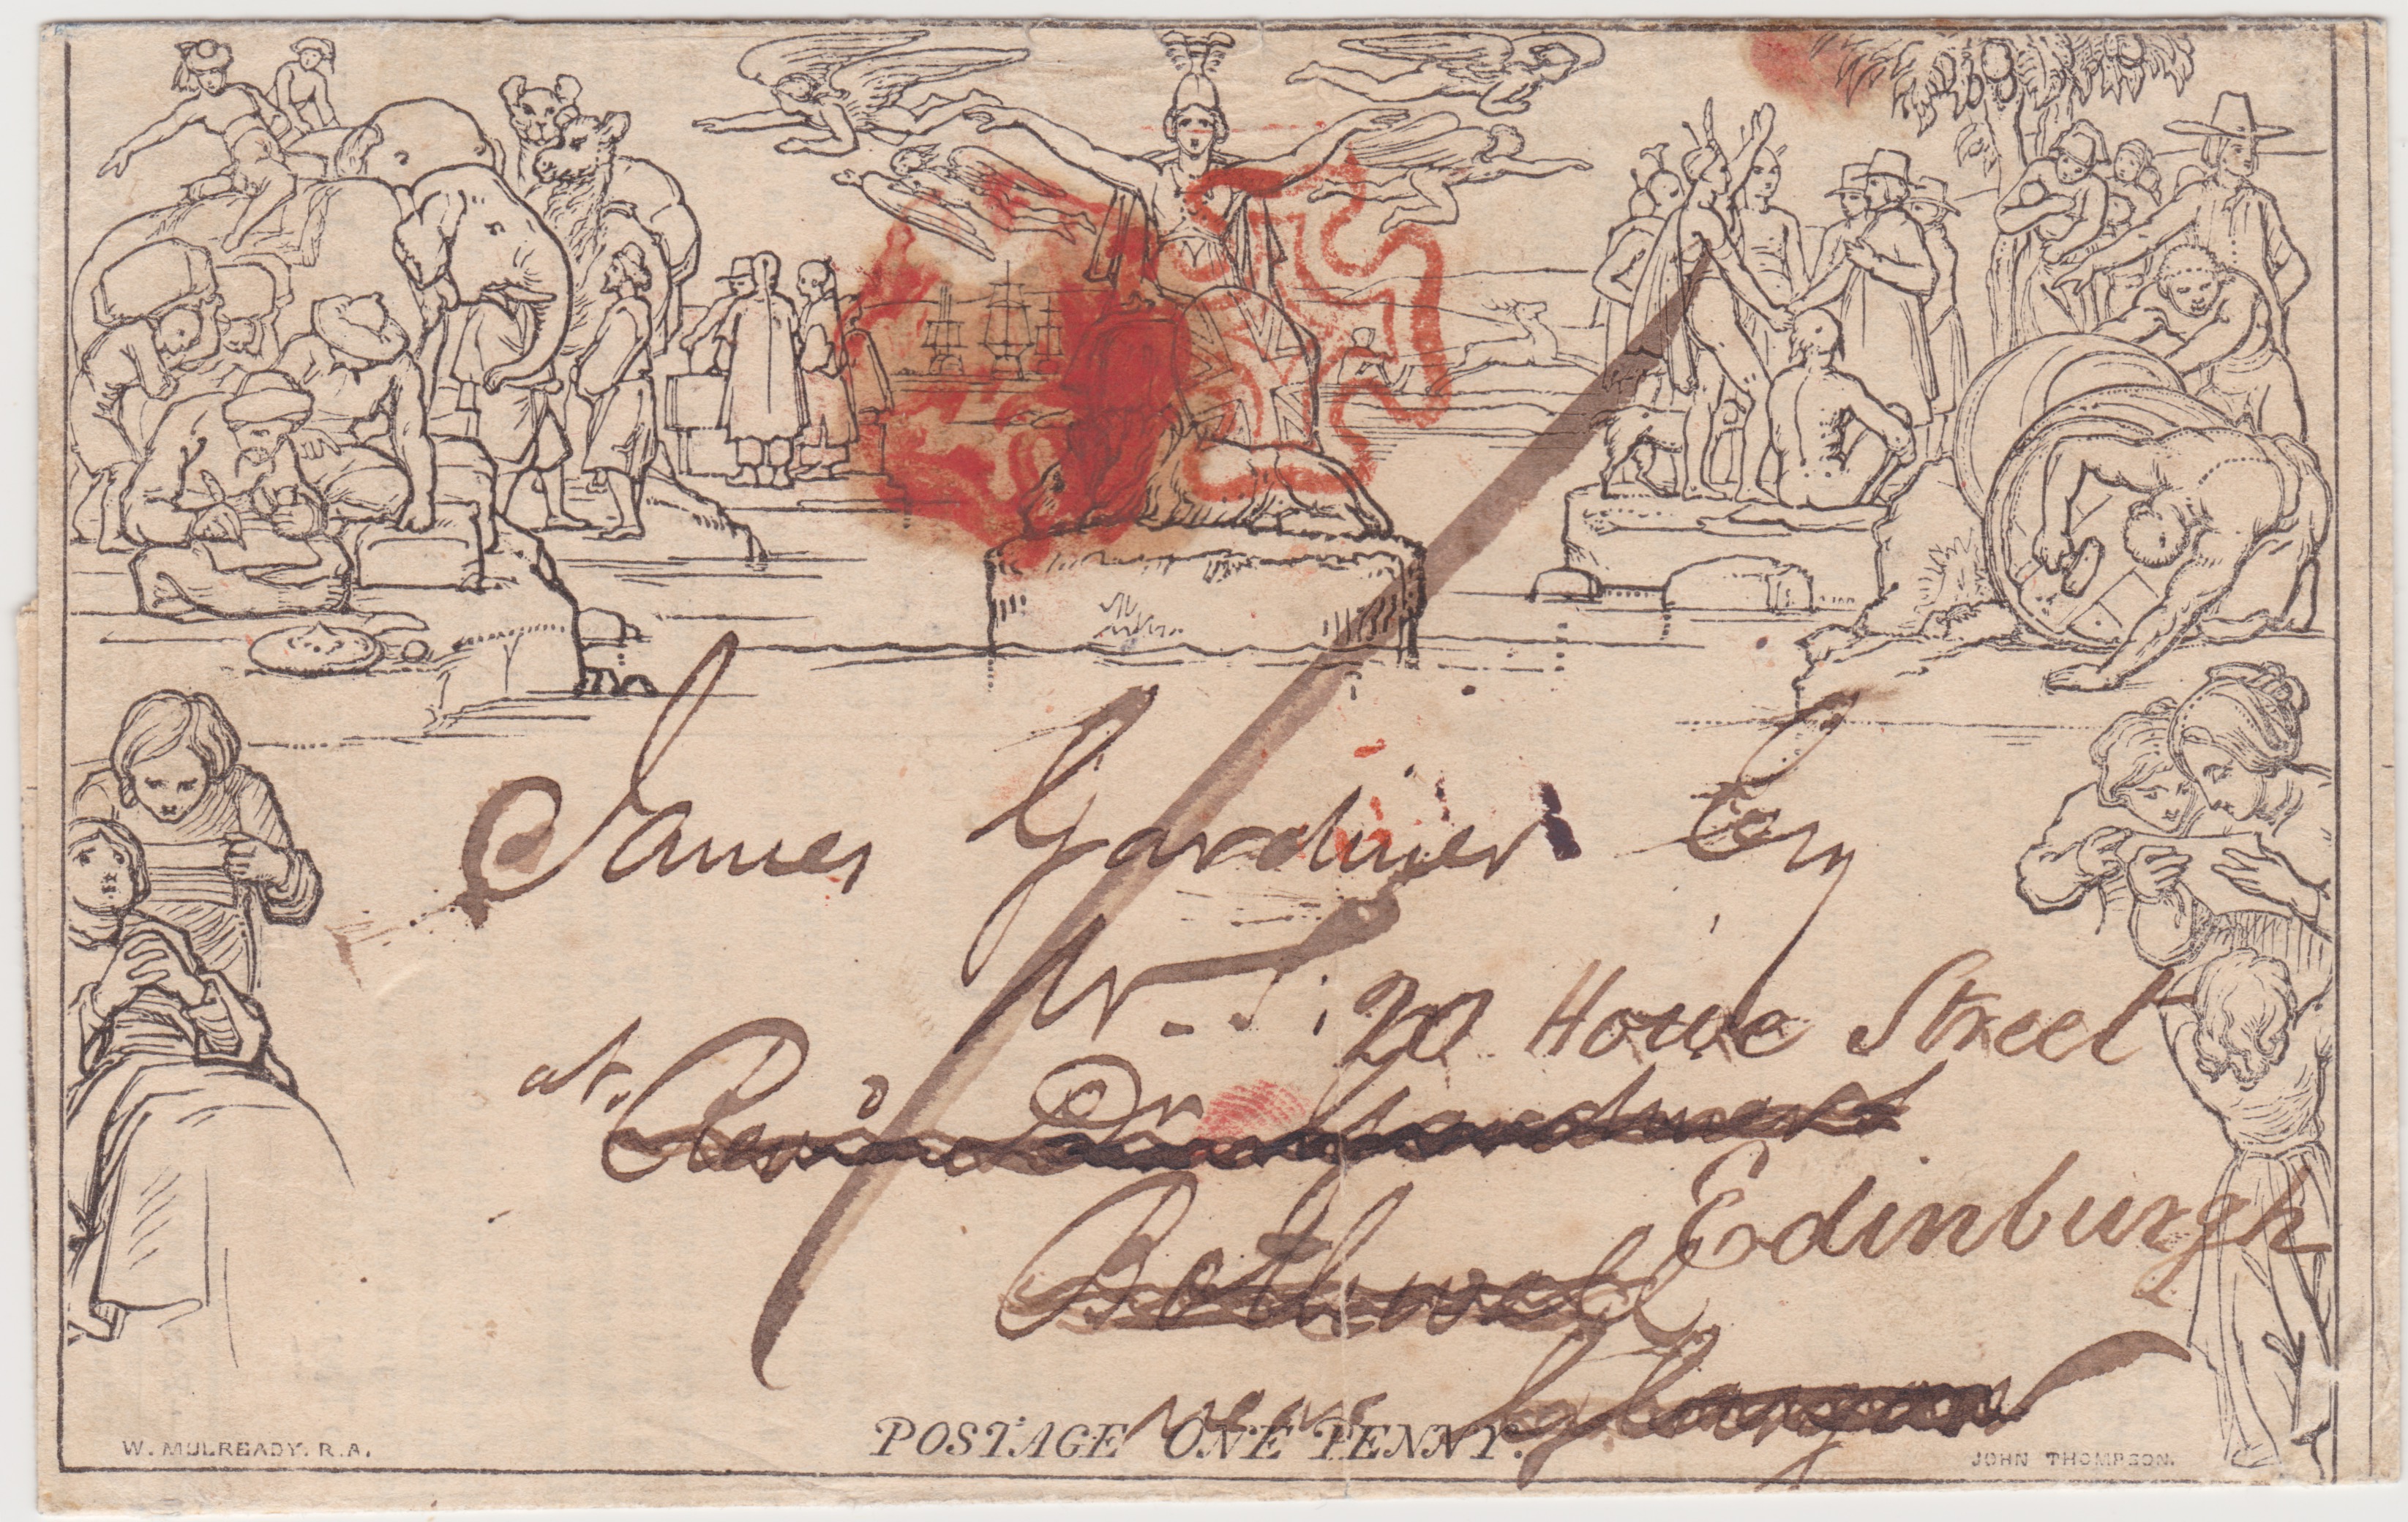 James Gardiner Esq
W. S.
20 Howe Street
at Revd Dr Gardiners
Bothwell
Edinburgh
near Glasgow
POSTAGE ONE PENNY.
W. MULREADY. R.A.
JOHN THOMPSON.